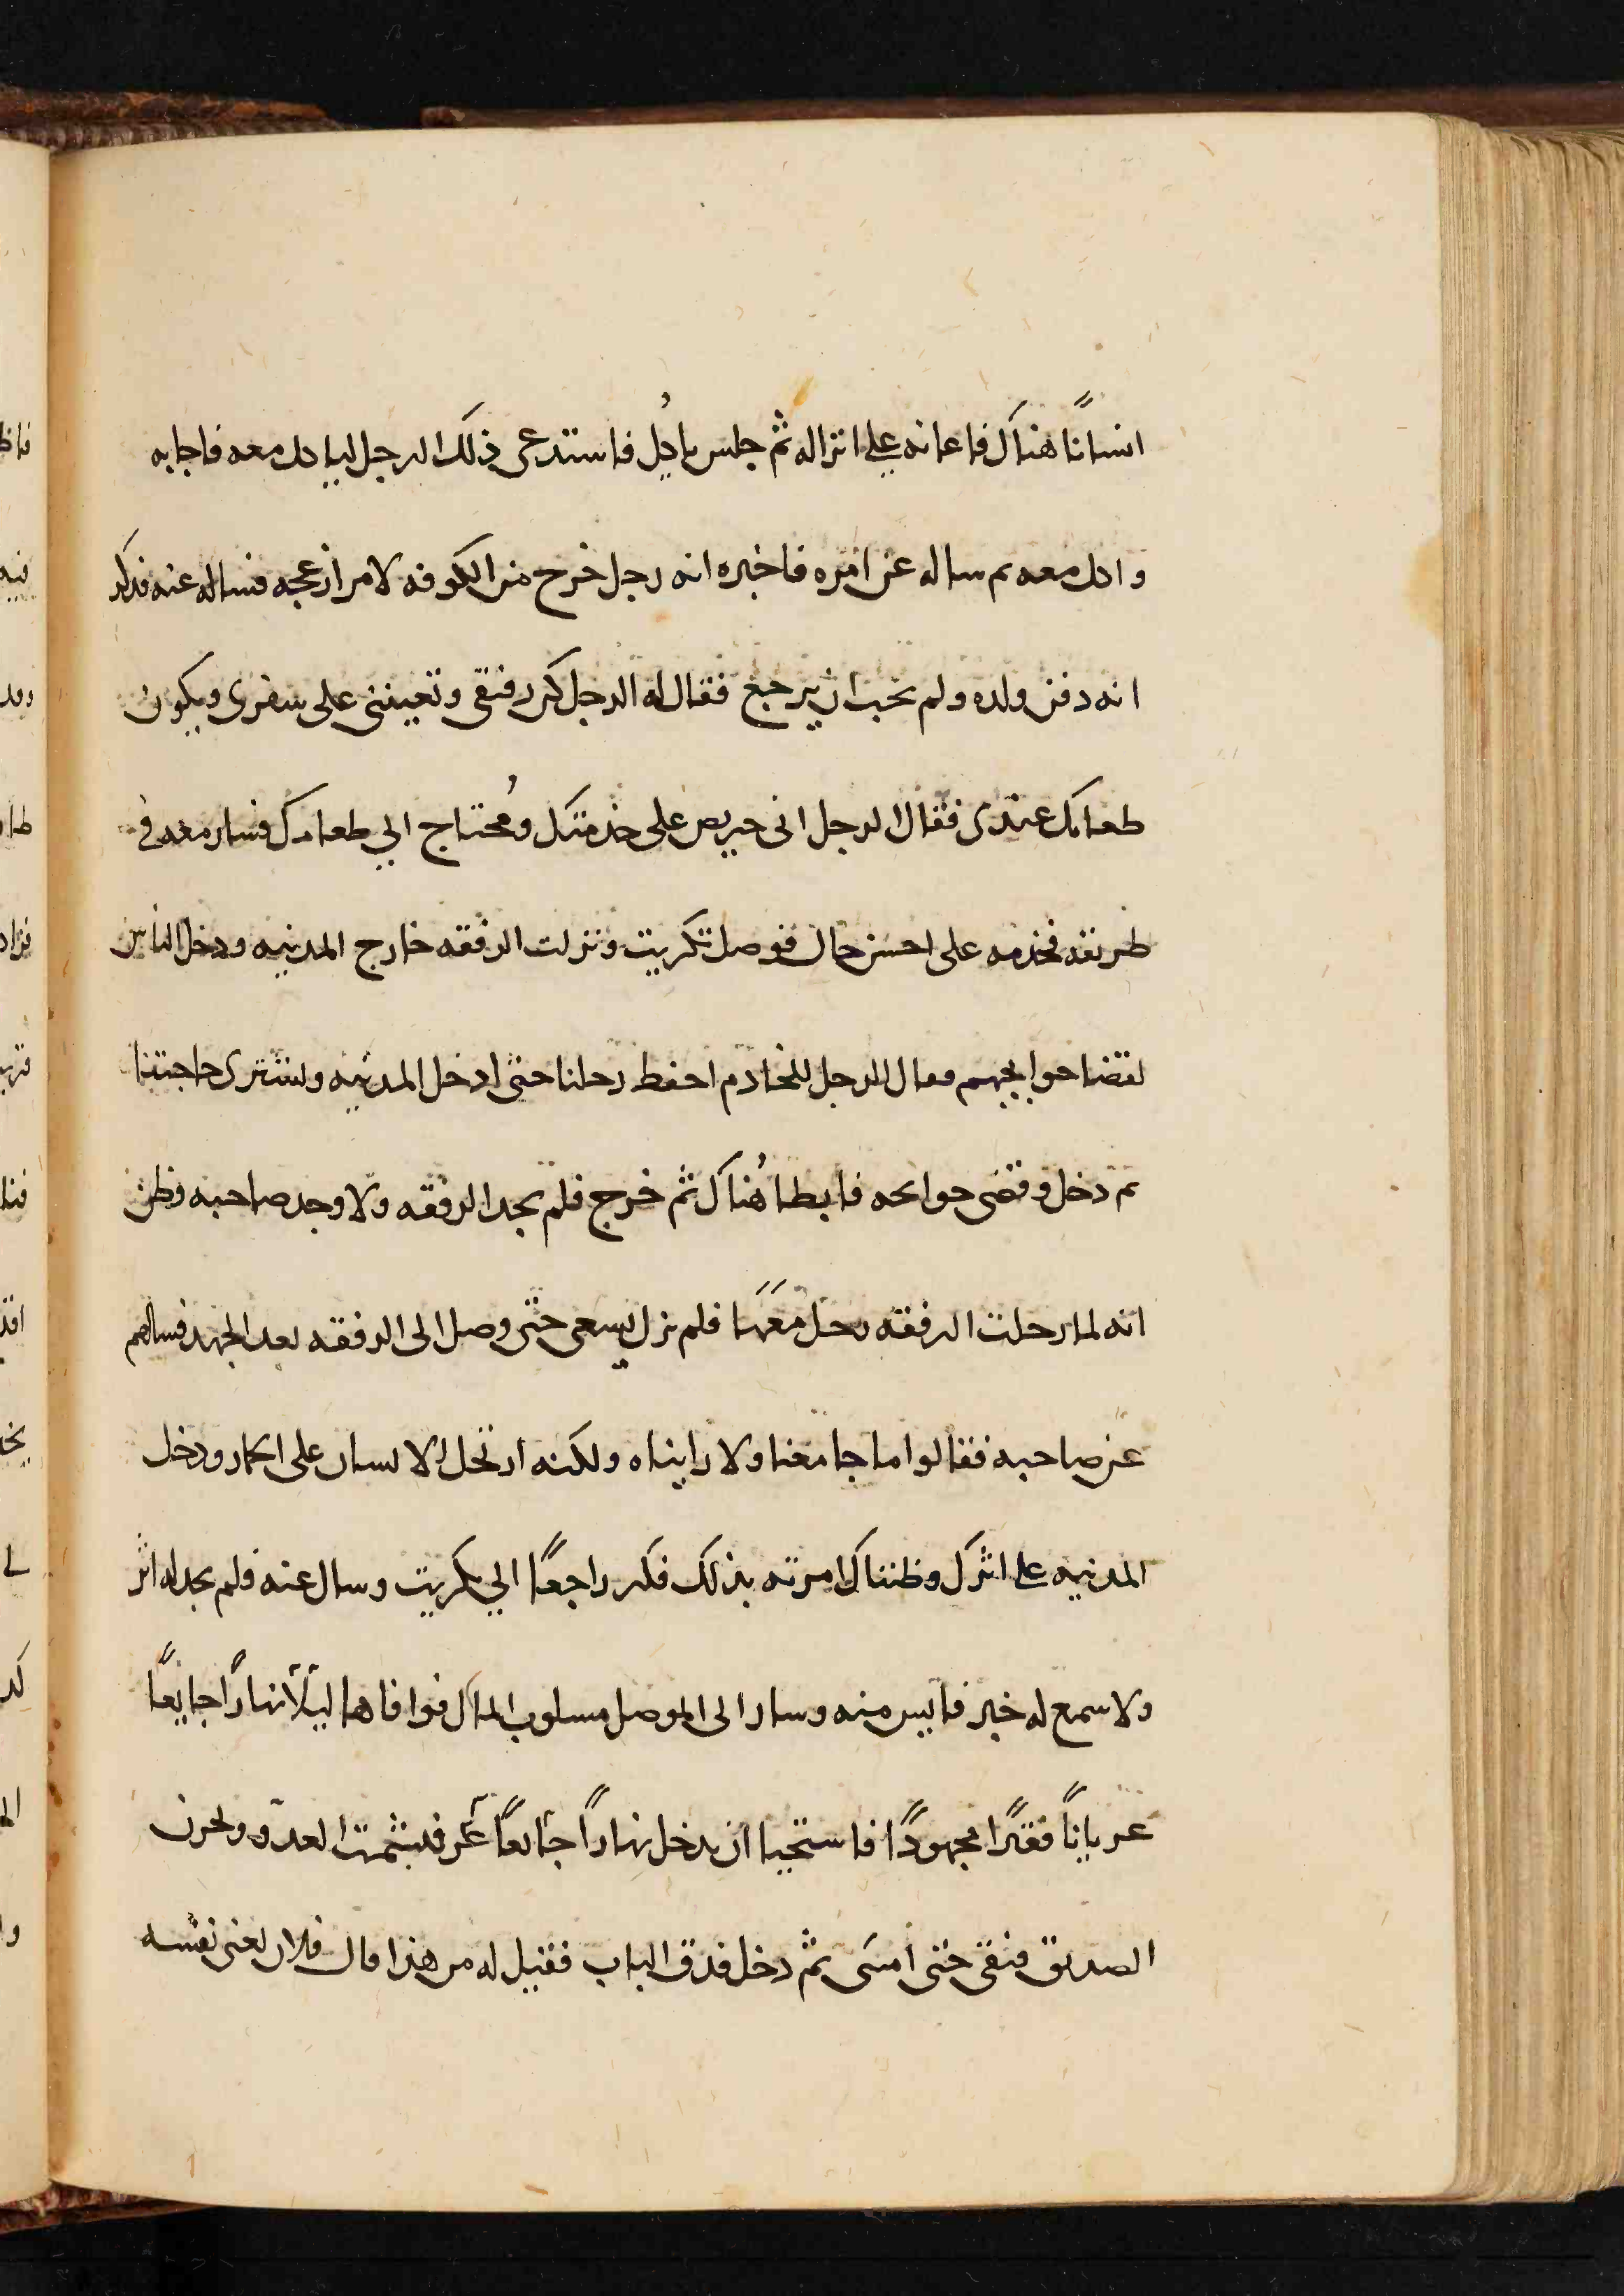 انسانًا هناك فاعانه علي انزاله ثم جلس ياكل فاستدعى ذلك الرجل لياكل معه فاجابه
واكل معه ثم ساله عن امره فاخبره انه رجل خرج من الكوفه لامر ازعجه فساله عنه فذكر
انه دفن ولده ولم يحب ان يرجع فقال له الرجل كن رفيقى وتعيننى على سفرى ويكون
طعامك عندى فقال الرجل انى حريص على خدمتك ومُحتاج الي طعامك فسار معه فى
طريقه فخدمه على احسن حال فوصل تكريت ونزلت الرفقه خارج المدينه ودخل الناس
لقضا حوايجهم فقال الرجل للخادم احفظ رحلنا حتى ادخل المدينه ولنشترى حاجتنا
ثم دخل وقضى حوايجه فابطا هُناك ثم خرج فلم يجد الرفقه ولا وجد صاحبه وظن
انه لما رحلت الرفقه رحل معَهَا فلم يزل يسعى حتى وصل الى الرفقه بعد الجهد فسالهم
عن صاحبه فقالوا ما جا معنا ولا رايناه ولكنه ارتحل الانسان على الحمار ودخل
المدينه على اثرك وظنناك امرته بذلك فكر راجعًا الي تكريت وسال عنه فلم يجد له اثر
ولا سمع له خبر فايس منه وسار الى الموصل مسلوب المال فوافاها ليلًا نهارًا جايعًا
عريانًا فقيرًا مجهودًا فاستحيا ان يدخل نهارًا جايعًا فيشمت العدو ويحزن
الصديق فبقى حتى امسَى ثم دخل فدق الباب فقيل له من هذا قال فلان يعنى نفسه